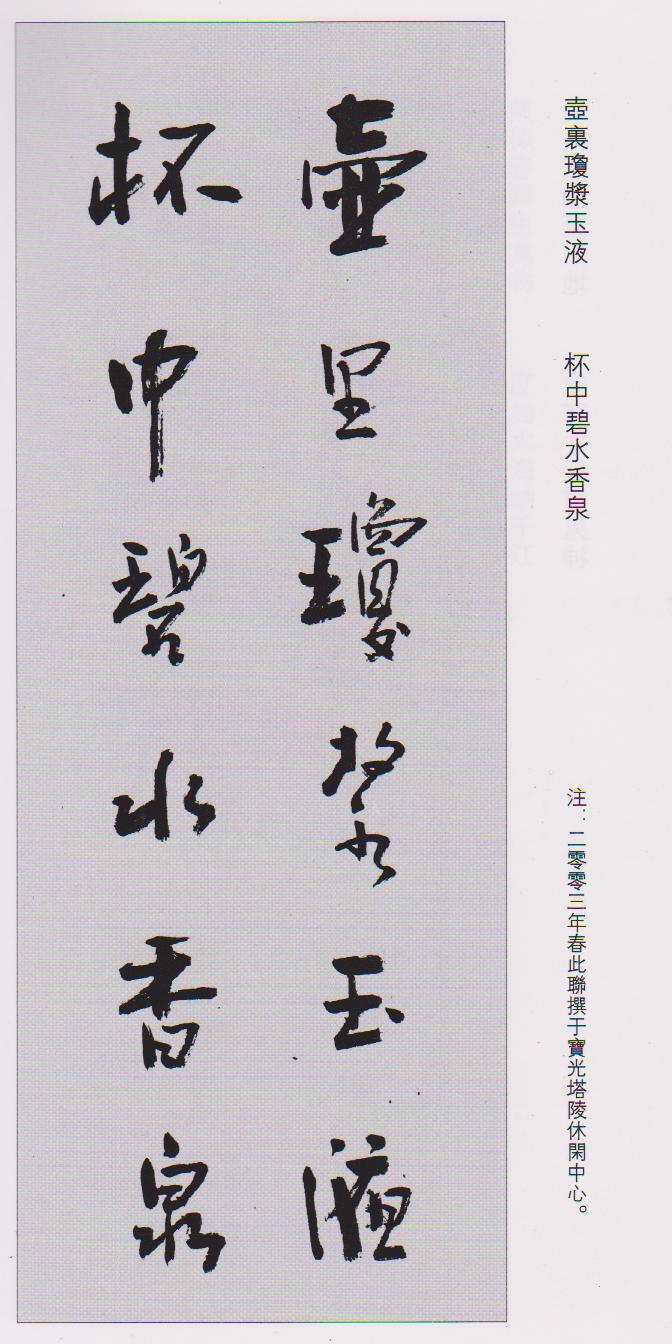 壺裏瓊漿玉液　杯中碧水香泉
注：二零零三年春此聯撰于寶光塔陵休閑中心。
壺里瓊漿玉液
杯中碧水香泉